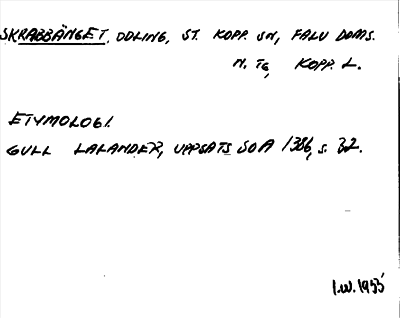 SKRABBÄNGET, ODLING, ST. KOPP. SN, FALU DOMS.
N. TG, KOPP. L.
ETYMOLOGI.
GULL LALANDER, UPPSATS SOA 1386, S. 32.
I.W. 1955